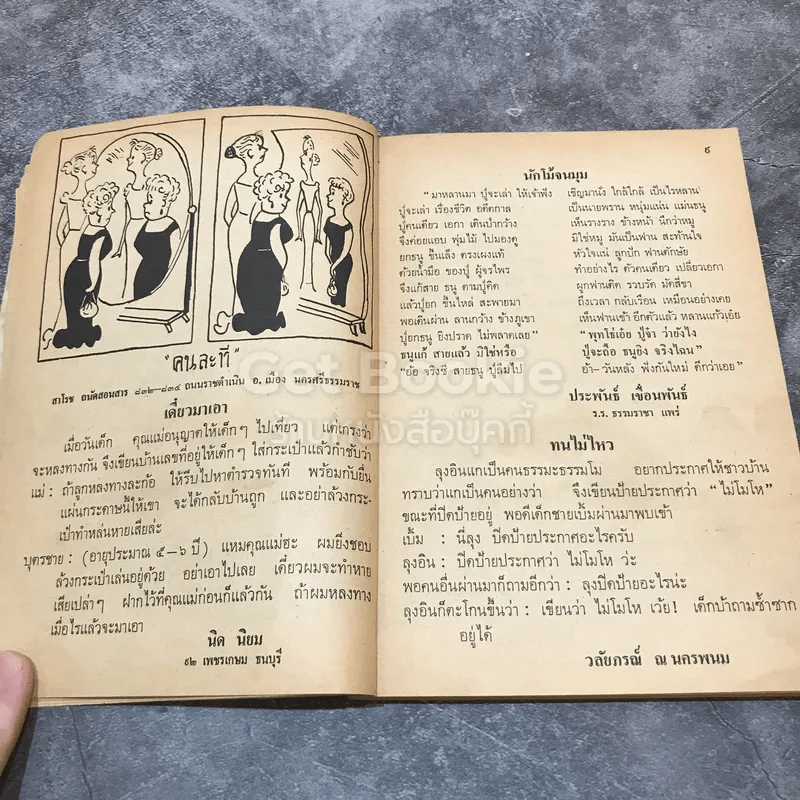 "คนละที"
สาโรช ถนัดสอนสาร ๘๓๒–๘๓๔ ถนนราชดำเนิน อ. เมือง นครศรีธรรมราช
เดี๋ยวมาเอา
เมื่อวันเด็ก คุณแม่อนุญาตให้เด็กๆ ไปเที่ยว แต่เกรงว่า
จะหลงทางกัน จึงเขียนบ้านเลขที่อยู่ให้เด็กๆ ใส่กระเป๋าแล้วกำชับว่า
แม่ : ถ้าลูกหลงทางละก้อ ให้รีบไปหาตำรวจทันที พร้อมกับยื่น
แผ่นกระดาษนี้ให้เขา จะได้กลับบ้านถูก และอย่าล้วงกระ-
เป๋าทำหล่นหายเสียล่ะ
บุตรชาย : (อายุประมาณ ๕–๖ ปี) แหมคุณแม่ฮะ ผมยิ่งชอบ
ล้วงกระเป๋าเล่นอยู่ด้วย อย่าเอาไปเลย เดี๋ยวผมจะทำหาย
เสียเปล่าๆ ฝากไว้ที่คุณแม่ก่อนก็แล้วกัน ถ้าผมหลงทาง
เมื่อไรแล้วจะมาเอา
นิด นิยม
๙๒ เพชรเกษม ธนบุรี
๙
นักโม้จนมุม
"มาหลานมา ปู่จะเล่า ให้เจ้าฟัง เชิญมานั่ง ใกล้ใกล้ เป็นไรหลาน
ปู่จะเล่า เรื่องชีวิต อดีตกาล เป็นนายพราน หนุ่มแน่น แม่นธนู
ปู่คนเดียว เอกา เดินป่ากว้าง เห็นรางราง ข้างหน้า นึกว่าหมู
จึงค่อยแอบ พุ่มไม้ ไปมองดู มิใช่หมู มันเป็นฟาน สะท้านใจ
ยกธนู ขึ้นเล็ง ตรงเผงแท้ หัวใจแน่ ลูกปัก ฟานดักษัย
ด้วยน้ำมือ ของปู่ ผู้จรไพร ทำอย่างไร ตัวคนเดียว เปลี่ยวเอกา
จึงแก้สาย ธนู ตามปู่คิด ผูกฟานติด รวบรัด มัดสี่ขา
แล้วปู่ยก ขึ้นไหล่ สะพายมา ถึงเวลา กลับเรือน เหมือนอย่างเคย
พอเดินผ่าน ลานกว้าง ข้างภูเขา เห็นฟานเข้า อีกตัวแล้ว หลานแก้วเอ๋ย
ปู่ยกธนู ยิงปราด ไม่พลาดเลย" "พุทโธ่เอ๋ย ปู่จ๋า ว่ายังไง
ธนูแก้ สายแล้ว มิใช่หรือ ปู่จะถือ ธนูยิง จริงไฉน"
"อ้อ จริงซี สายธนู ปู่ลืมไป อ้า–วันหลัง ฟังกันใหม่ ดีกว่าเอย"
ประพันธ์ เขื่อนพันธ์
ร.ร. ธรรมราชา แพร่
ทนไม่ไหว
ลุงอินแกเป็นคนธรรมะธรรมโม อยากประกาศให้ชาวบ้าน
ทราบว่าแกเป็นคนอย่างว่า จึงเขียนป้ายประกาศว่า "ไม่โมโห"
ขณะที่ปิดป้ายอยู่ พอดีเด็กชายเบิ้มผ่านมาพบเข้า
เบิ้ม : นี่ลุง ปิดป้ายประกาศอะไรครับ
ลุงอิน : ปิดป้ายประกาศว่า ไม่โมโห ว่ะ
พอคนอื่นผ่านมาก็ถามอีกว่า : ลุงปิดป้ายอะไรน่ะ
ลุงอินก็ตะโกนขึ้นว่า : เขียนว่า ไม่โมโห เว้ย! เด็กบ้าถามซ้ำซาก
อยู่ได้
วลัยภรณ์ ณ นครพนม
Get Bookie
ร้านหนังสือบุ๊คกี้